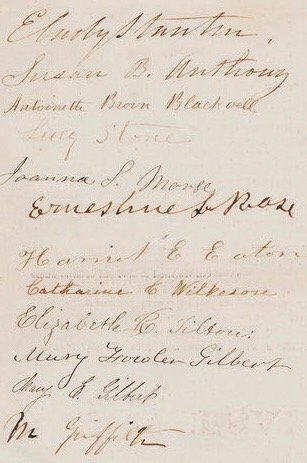 E Cady Stanton,
Susan B. Anthony
Antoinette Brown Blackwell
Lucy Stone
Joanna S. Morse
Ernestine L Rose
Harriet E Eaton
Catharine C Wilkeson
Elizabeth R. Tilton.
Mary Fowler Gilbert
Mary E Gilbert
M Griffith